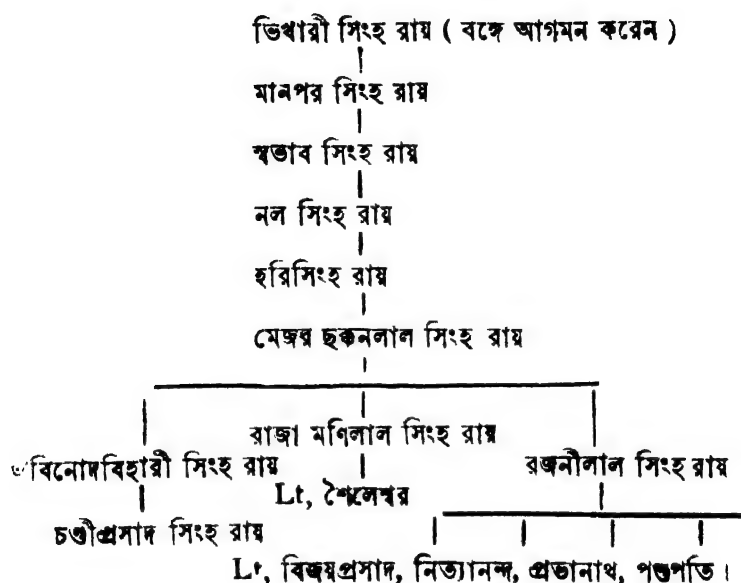 ভিখারী সিংহ রায় ( বঙ্গে আগমন করেন )
মানপর সিংহ রায়
স্বভাব সিংহ রায়
নল সিংহ রায়
হরিসিংহ রায়
মেজর ছক্কনলাল সিংহ রায়
রাজা মণিলাল সিংহ রায়
৺বিনোদবিহারী সিংহ রায়
রজনীলাল সিংহ রায়
Lt, শৈলেশ্বর
চণ্ডীপ্রসাদ সিংহ রায়
Lt, বিজয়প্রসাদ, নিত্যানন্দ, প্রভানাথ, পশুপতি।